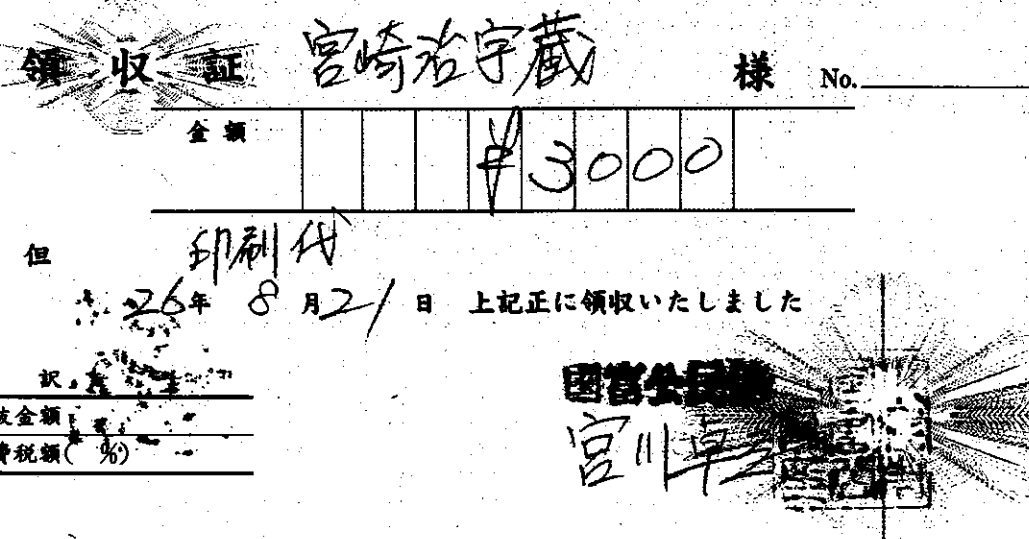 領収証 宮崎治宇蔵 様 No.
金額 ¥3000
但 印刷代
26年 8月21日 上記正に領収いたしました
訳
国富公民館
抜金額
費税額( %)
宮川卓